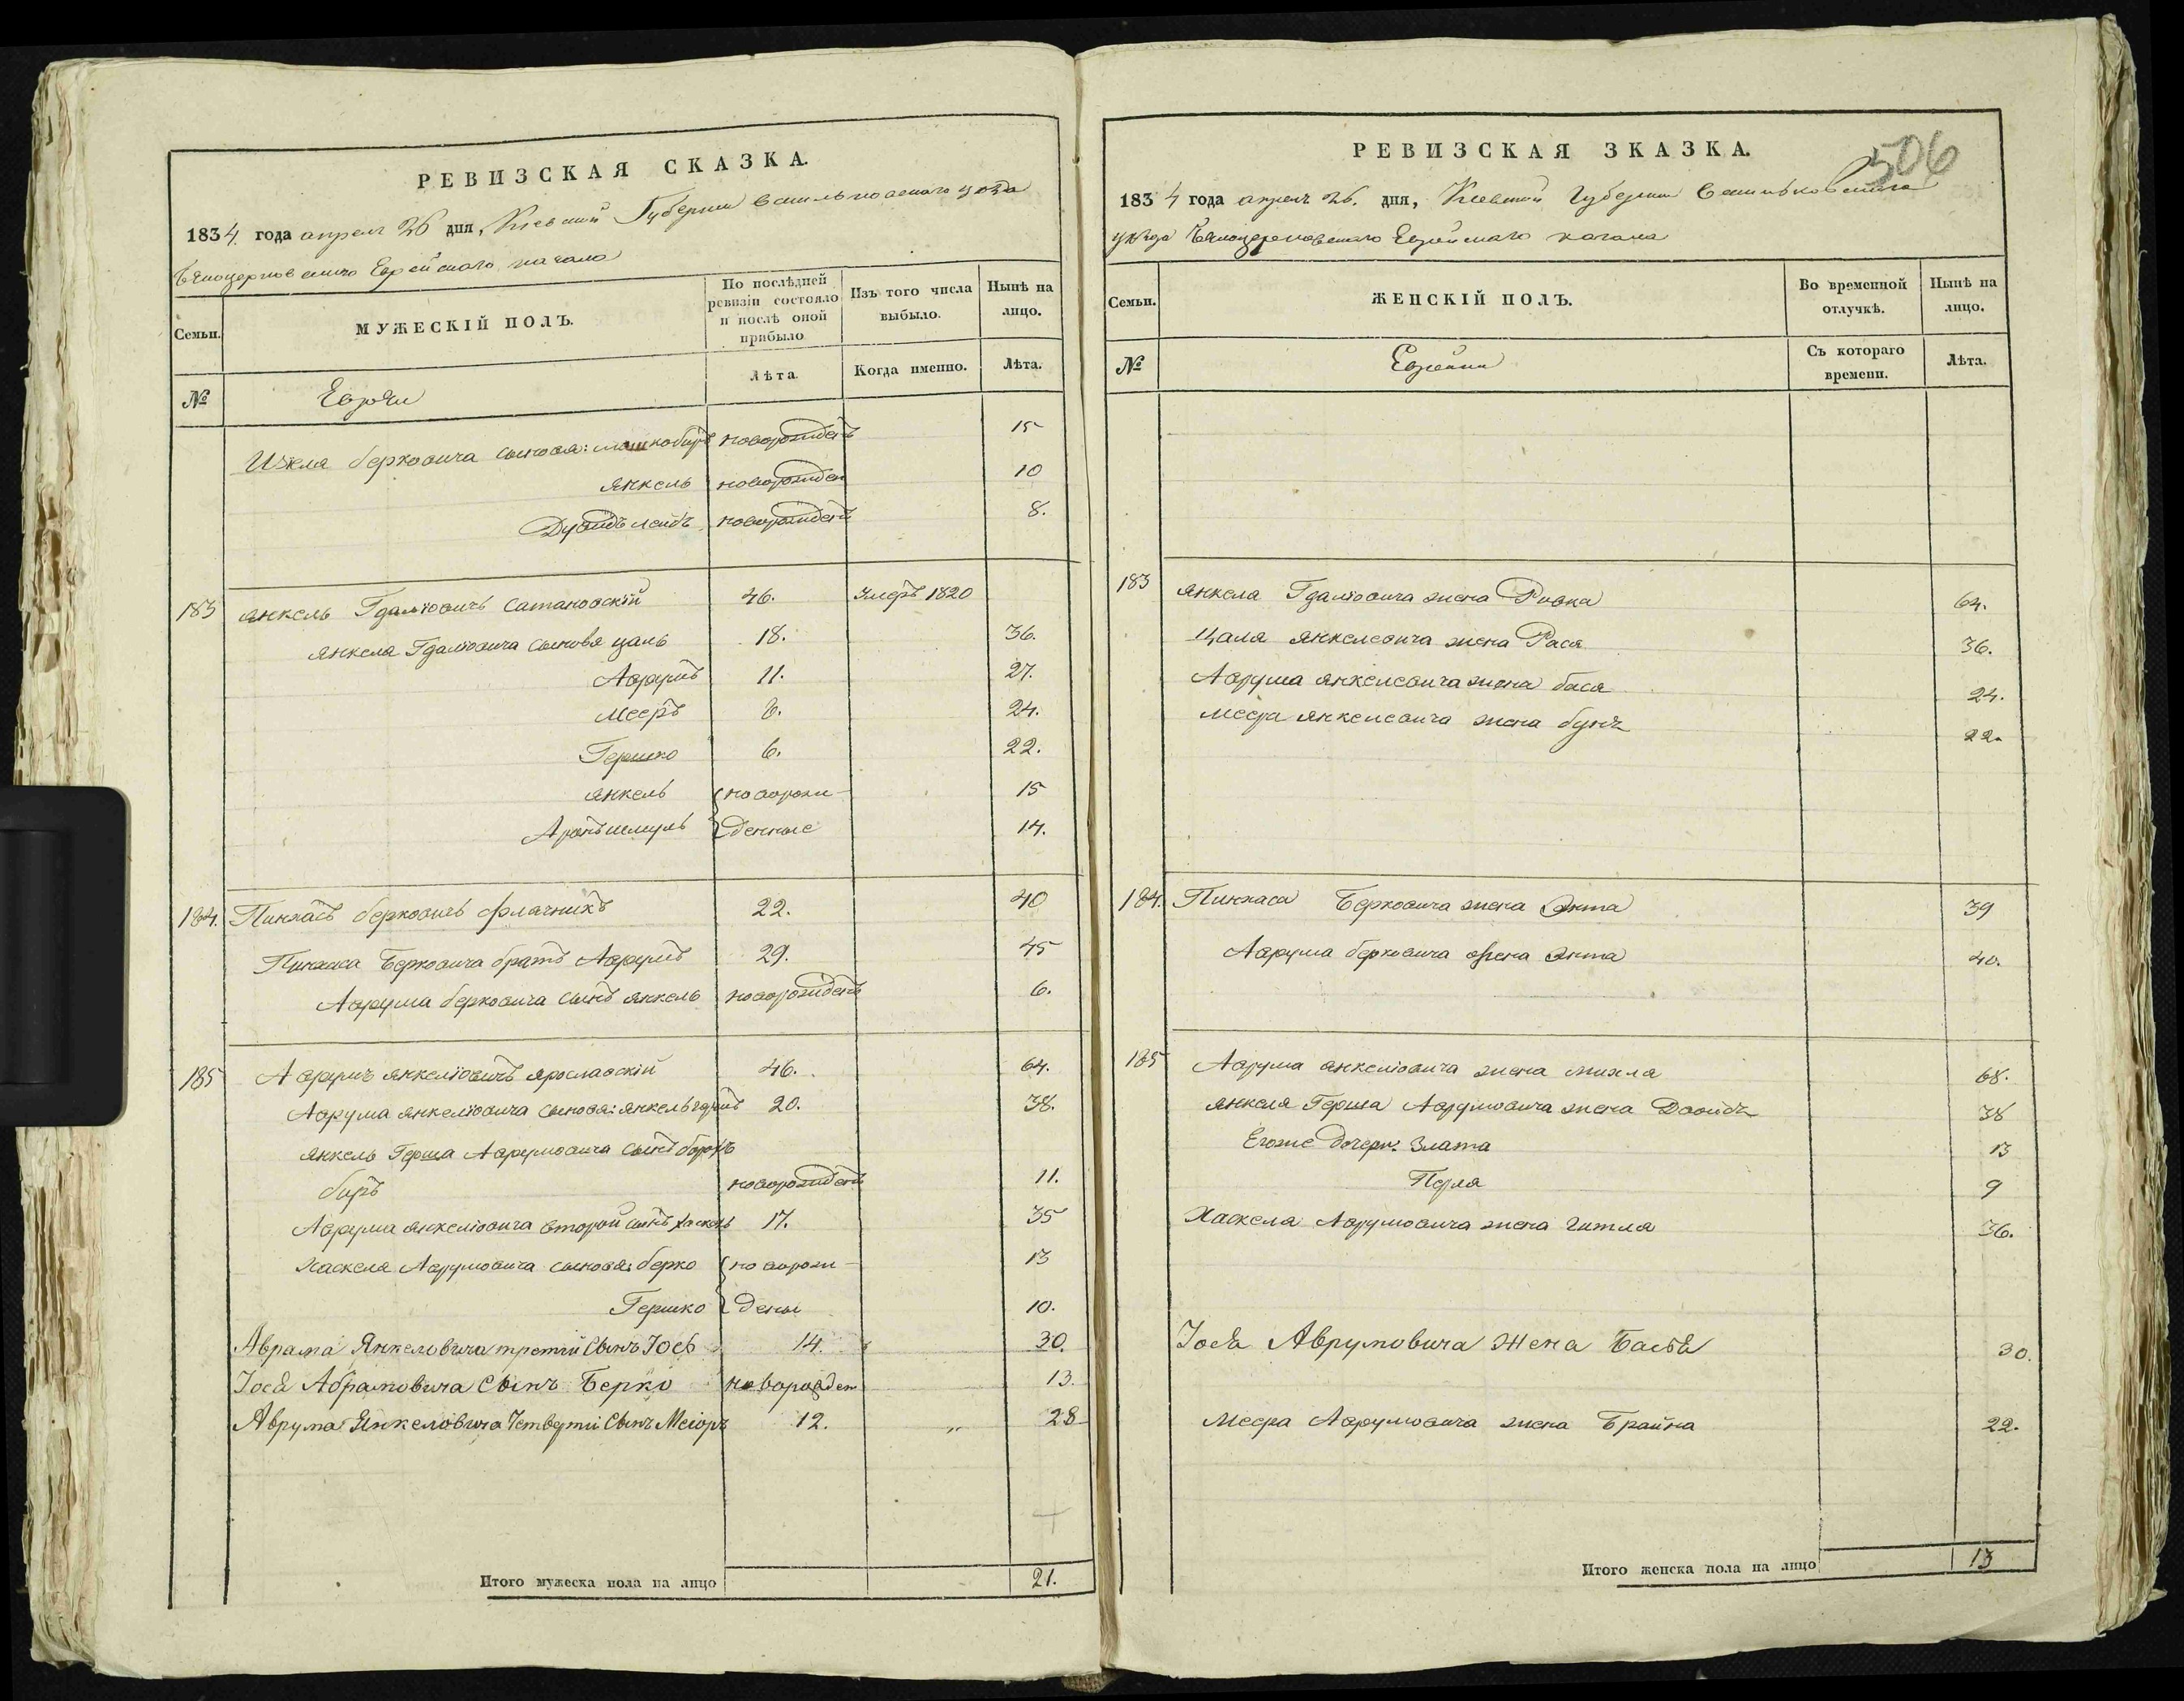 РЕВИЗСКАЯ СКАЗКА.
1834. года апреля 26 дня, Киевской Губернии Васильковскаго уѣзда
Бѣлоцерковскаго Еврейскаго кагала
Семьи.
МУЖЕСКІЙ ПОЛЪ.
По послѣдней ревизіи состояло и послѣ оной прибыло
Изъ того числа выбыло.
Нынѣ на лицо.
№
Евреи
Лѣта
Когда именно.
Лѣта.
Ицкла берковича сыновя: новорожденъ 15
Янкель новорожден 10
Дувидъ лейбъ новорожденъ 8.
183 Янкель Гдалiовичъ Сатановскій 46. Умеръ 1820
Янкеля Гдалiовича сыновя цаль 18. 36.
Аврумъ 11. 27.
Мееръ 8. 24.
Гершко 6. 22.
Янкель новорож- 15
Аронъ шмуль денные 14.
184. Пинхасъ берковичъ Флачникъ 22. 40
Пинхаса Берковича братъ Аврумъ 29. 45
Аврума берковича сынъ Янкель новорожденъ 6.
185 Аврумъ Янкелiовичъ Ярославскій 46. 64.
Аврума Янкелiовича сыновя: Янкель гершъ 20. 38.
Янкель Герша Аврумовича сынъ борохъ
биръ новорожденъ 11.
Аврума Янкелiовича второй сынъ хаскель 17. 35
Хаскеля Аврумовича сыновя: берко новорож- 13
Гершко дены 10.
Аврама Янкеловича третій Сынъ Іось 14. 30.
Іося Абрамовича Сынъ Берко новорожден 13.
Аврума Янкеловича Четвертій Сынъ Меіоръ 12. " 28
Итого мужеска пола на лицо 21.
506
РЕВИЗСКАЯ ЗКАЗКА.
1834 года апреля 26. дня, Киевской Губернии Васильковскаго
уѣзда Бѣлоцерковскаго Еврейскаго кагала
Семьи.
ЖЕНСКІЙ ПОЛЪ.
Во временной отлучкѣ.
Нынѣ на лицо.
№
Еврейки
Съ котораго времени.
Лѣта.
183 Янкеля Гдалiовича жена Ровка 64.
Цаля Янкелевича жена Рася 36.
Аврума Янкелевича жена бася 24.
Меера Янкелевича жена бунъ 22.
184. Пинхаса Берковича жена Энта 39
Аврума берковича жена Энта 40.
185 Аврума Янкелiовича жена михля 68.
Янкеля Герша Аврумовича жена Двойдъ 38
Егоже дочери: Злата 13
Перля 9
Хаскеля Аврумовича жена Гитля 36.
Іося Аврумовича Жена Басья 30.
Меера Аврумовича жена Брайна 22.
Итого женска пола на лицо 13